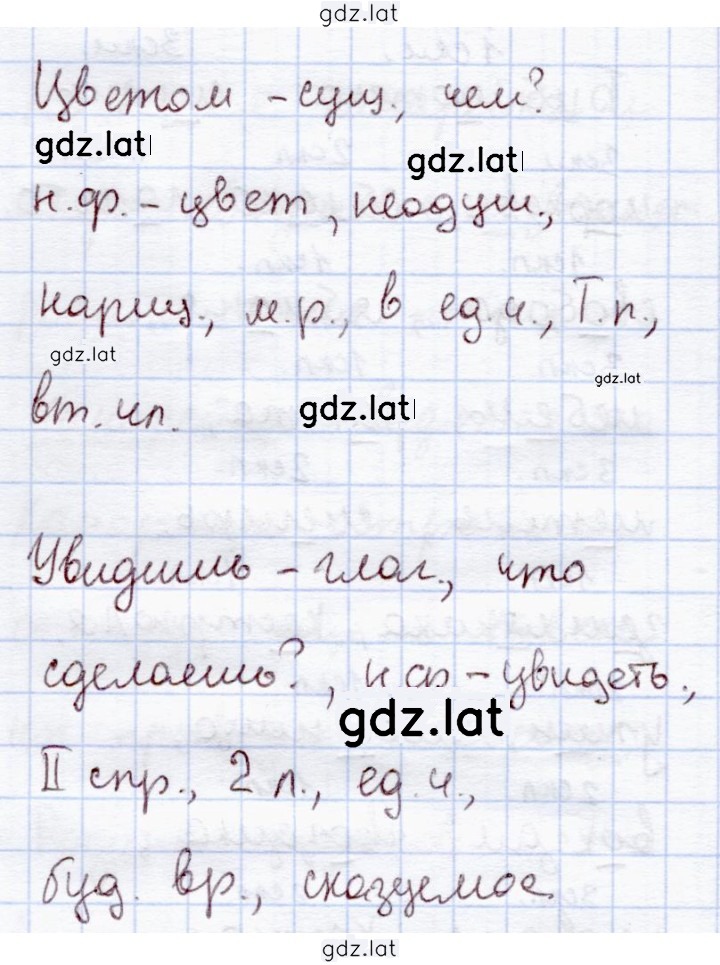 gdz.lat
Цветом – сущ., чем?
gdz.lat gdz.lat
н.ф. – цвет, неодуш.,
нариц., м.р., в ед.ч., Т.п.,
gdz.lat gdz.lat
вт. чл. gdz.lat
Увидишь – глаг., что
сделаешь?, н.ф – увидеть,
gdz.lat
II спр., 2 л., ед.ч.,
буд. вр., сказуемое.
gdz.lat